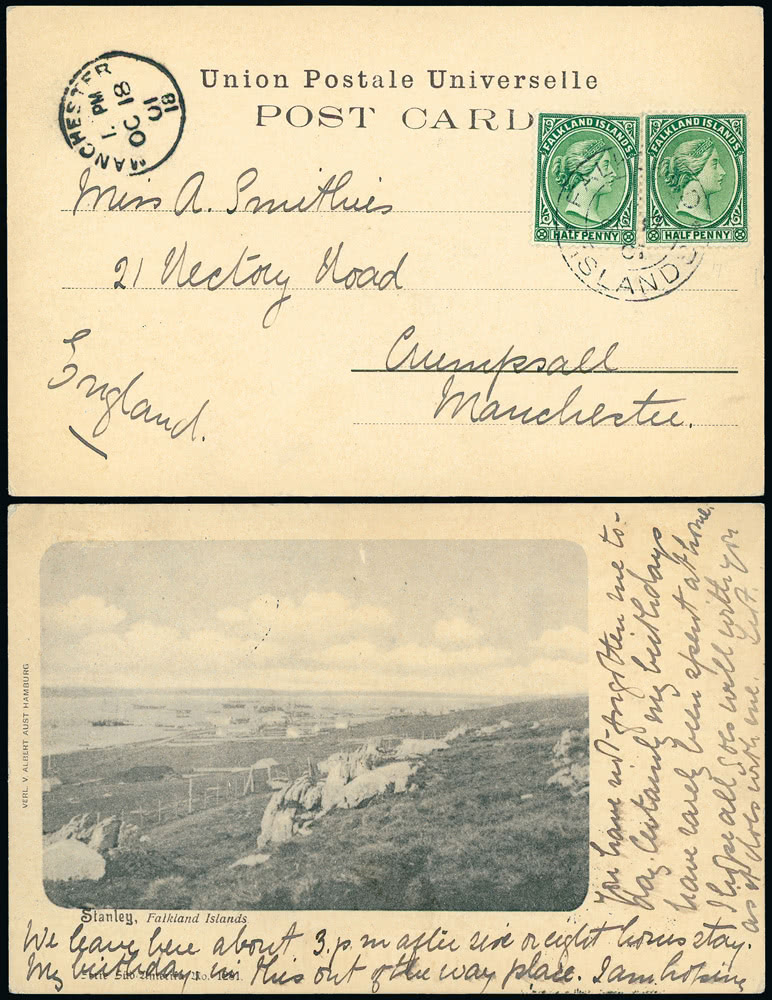 MANCHESTER
1 PM
OC 18
01
18
Union Postale Universelle
POST CARD
FALKLAND ISLANDS
HALFPENNY
FALKLAND ISLANDS
HALFPENNY
FALK
ISLANDS
Miss A. Smithies
21 Rectory Road
Crumpsall
Manchester.
England.
VERL. V. ALBERT AUST HAMBURG
Stanley, Falkland Islands
We leave here about 3. p.m after six or eight hours stay.
My birthday in this out of the way place. I am hoping
You have not forgotten me to-
day. Certainly my birthdays
have rarely been spent at home.
I hope all goes well with you
as it does with me.